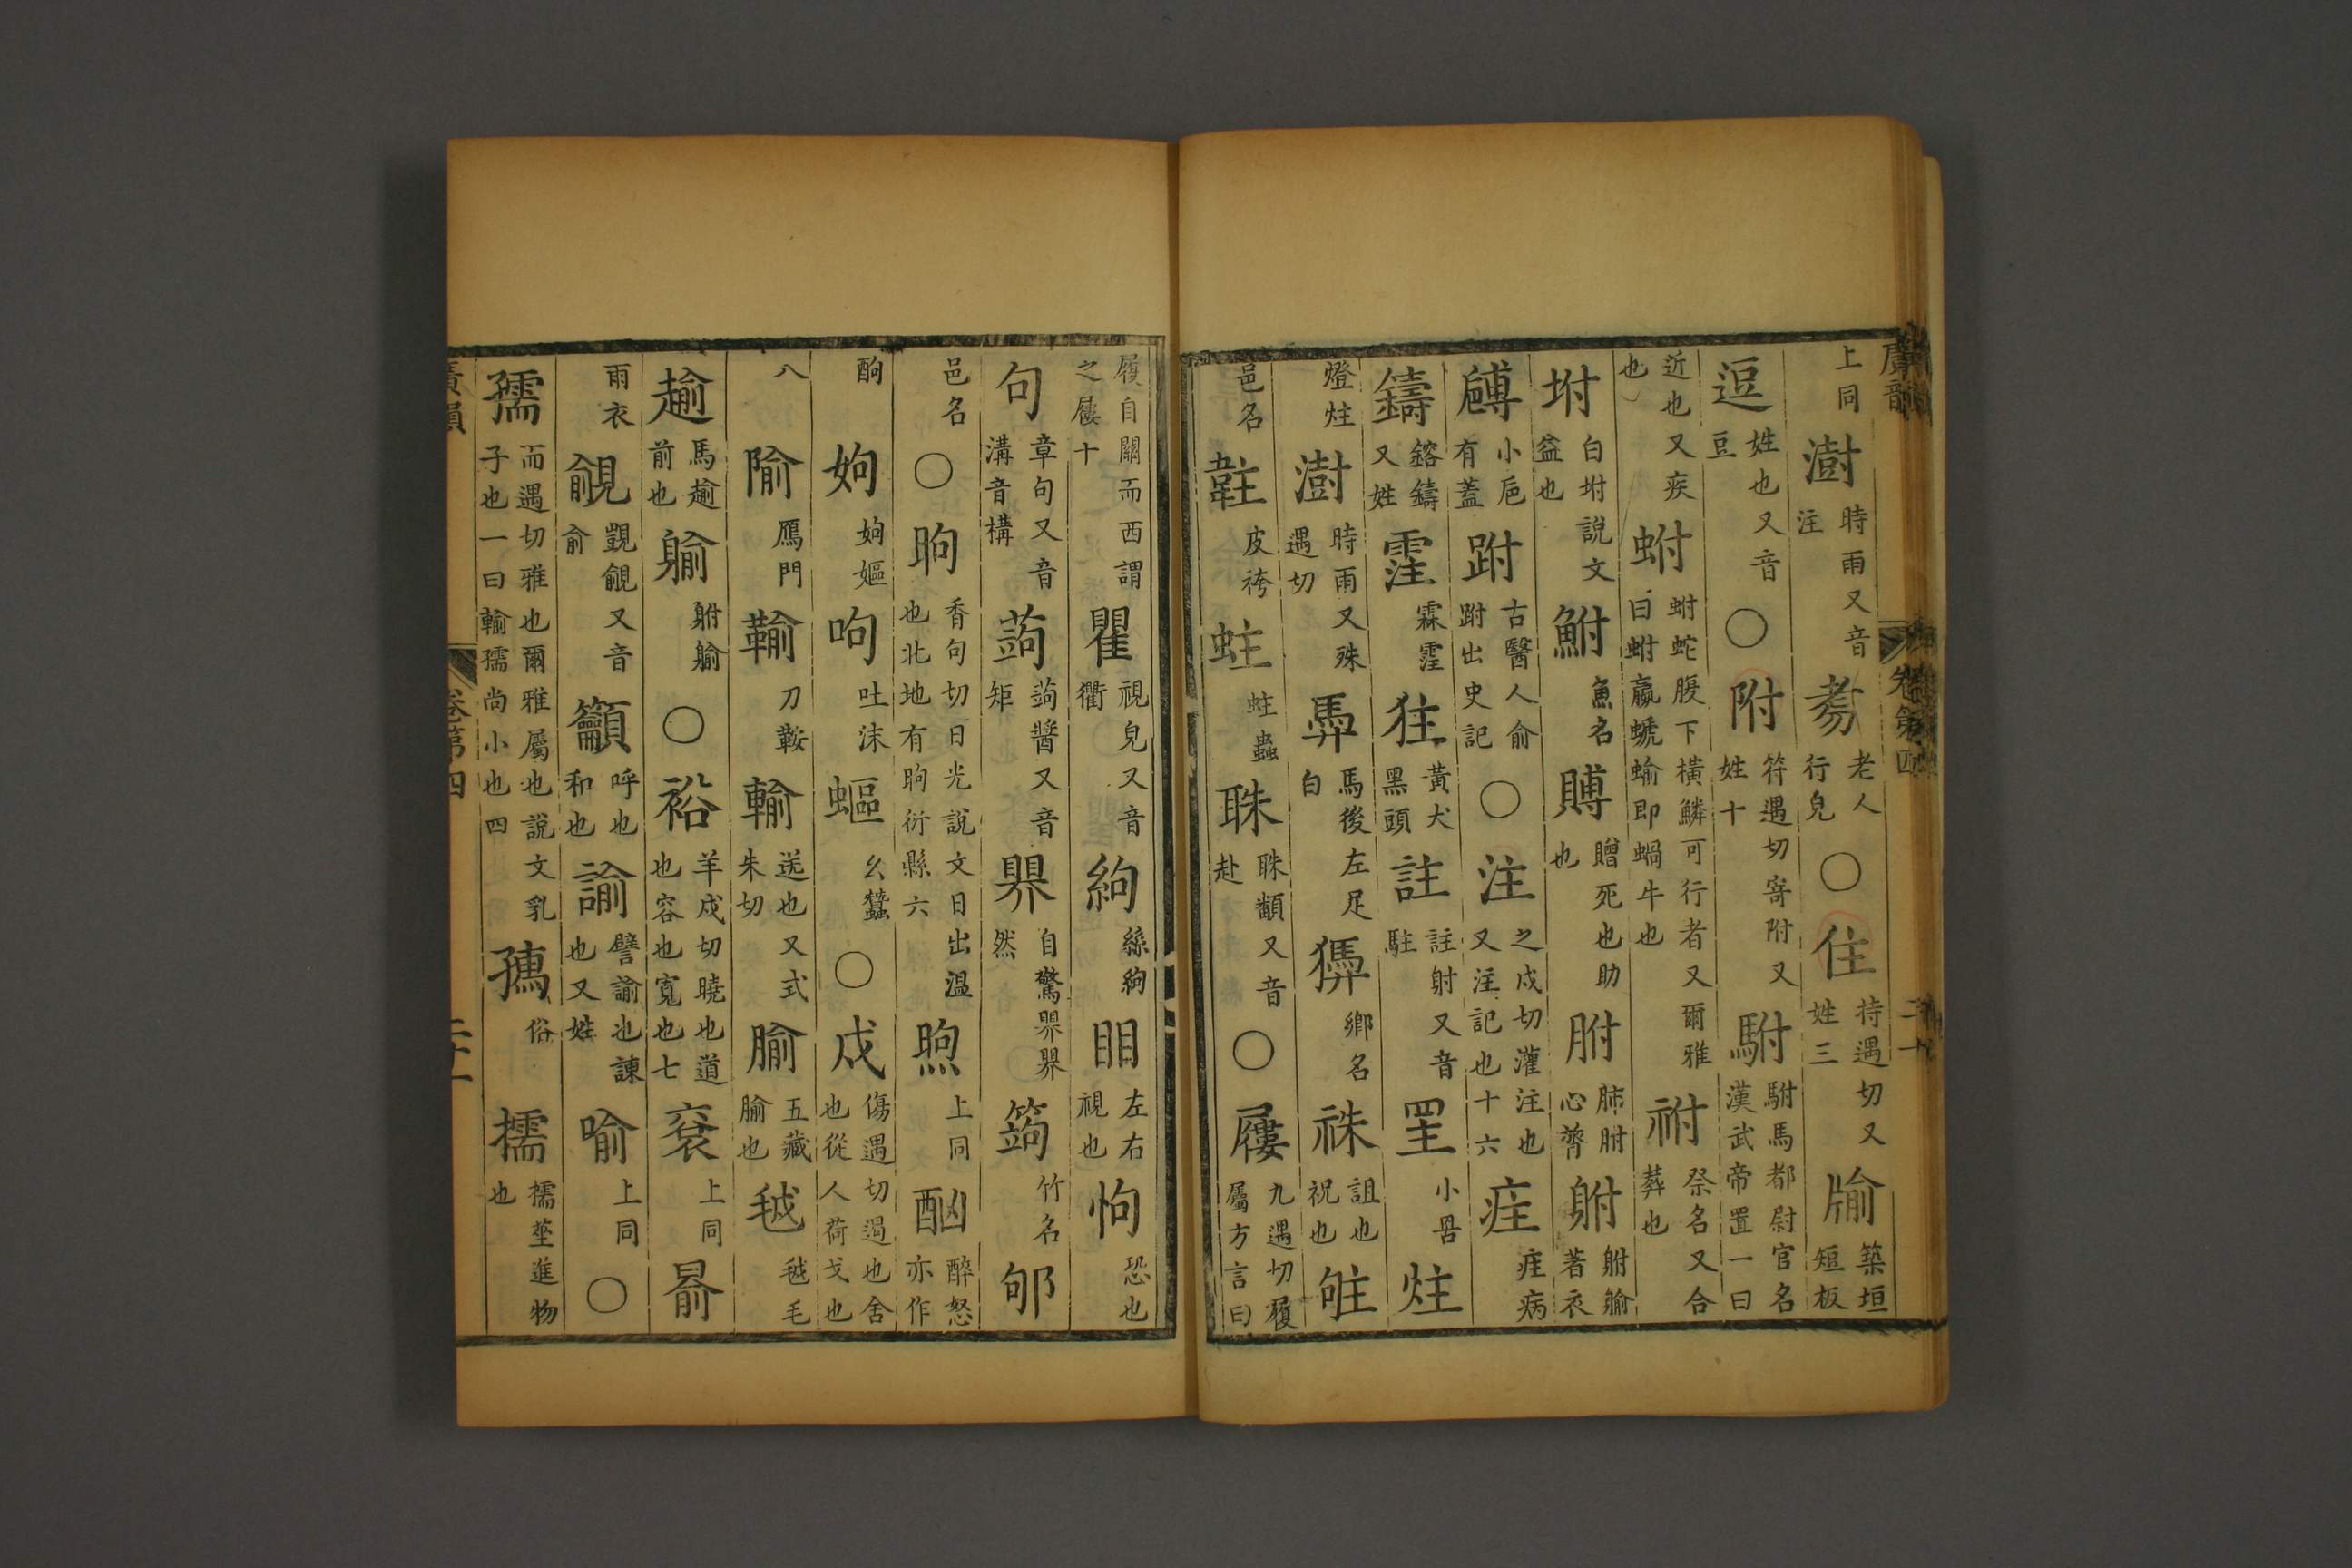 廣韻 卷第四 二十一
上同 澍 時雨又音注 𦒻 老人行皃 ○ 住 持遇切又姓三 牏 築垣短板
逗 姓也又音豆 ○ 附 符遇切寄附又姓十 駙 駙馬都尉官名漢武帝置一曰
近也又疾也 蚹 蚹蛇腹下橫鱗可行者又爾雅曰蚹蠃螔蝓即蝸牛也 祔 祭名又合葬也
坿 白坿說文益也 鮒 魚名 賻 贈死也助也 胕 肺胕心膂 䠵 䠵𨉷著衣
䪔 小卮有蓋 跗 古醫人俞跗出史記 ○ 注 之戍切灌注也又注記也十六 疰 疰病
鑄 鎔鑄又姓 霔 霖霔 狅 黃犬黑頭 註 註射又音駐 罜 小罟 炷
燈炷 澍 時雨又殊遇切 馵 馬後左足白 𤡮 鄉名 祩 詛也祝也 䣷
邑名 䪒 皮袴 蛀 蛀蟲 䎷 䎷顜又音赴 ○ 屨 九遇切履屬方言曰
履自關而西謂之屨十 瞿 視皃又音衢 絇 絲絇 䀠 左右視也 怐 恐也
句 章句又音溝音構 蒟 蒟醬又音矩 界 自驚界界然 䈮 竹名 郇
邑名 ○ 昫 香句切日光說文日出溫也北地有昫衍縣六 煦 上同 酗 醉怒亦作
酌 姁 姁嫗 呴 吐沫 䗋 幺蠶 ○ 戍 傷遇切遏也舍也從人荷戈也
八 隃 鴈門 䩱 刀鞍 輸 送也又式朱切 腧 五藏腧也 毧 毧毛
䞕 馬䞕前也 𨉷 䠵𨉷 ○ 裕 羊戍切曉也道也容也寬也七 袞 上同 㬰
雨衣 覦 覬覦又音俞 籲 呼也和也 諭 譬諭也諫也又姓 喻 上同 ○
孺 而遇切雅也爾雅屬也說文乳子也一曰輸孺尚小也四 𡦗 俗 擩 擩莝進物也
廣韻 卷第四 二十一